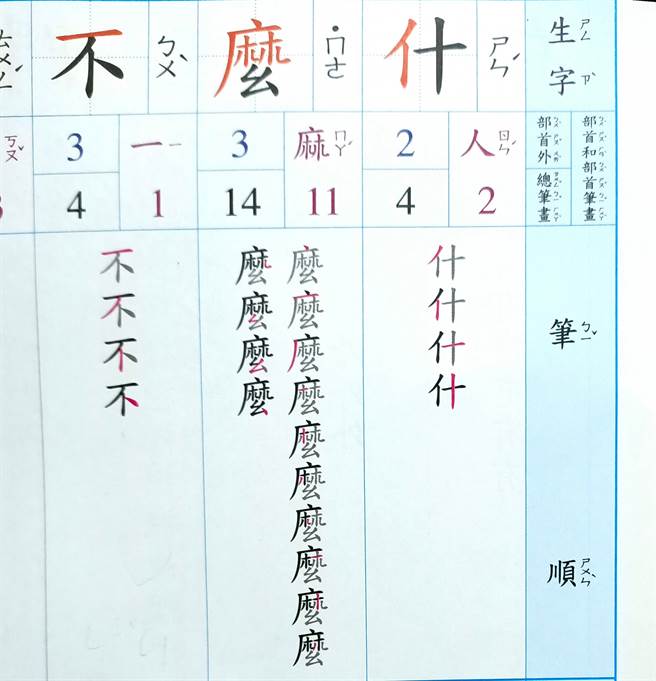 生字 ㄕㄥ ㄗˋ
部首和部首筆畫
部首外
總筆畫
筆順 ㄅㄧˇ ㄕㄨㄣˋ
什 ㄕㄣˊ
人 ㄖㄣˊ
2
2
4
什
什
什
什
麼 ˙ㄇㄜ
麻 ㄇㄚˊ
11
3
14
麼
麼
麼
麼
麼
麼
麼
麼
麼
麼
麼
麼
麼
麼
不 ㄅㄨˋ
一 ㄧ
1
3
4
不
不
不
不
ㄎㄡˇ